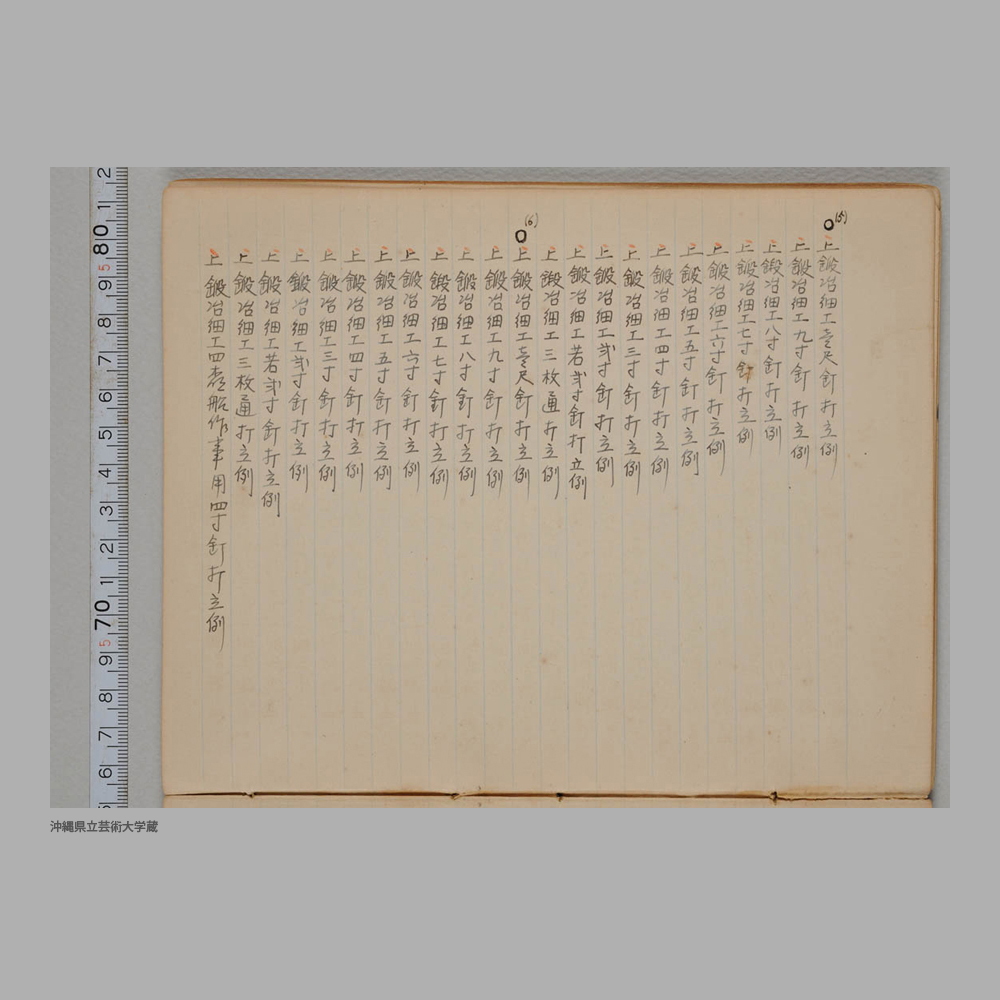 (5)
○上鍛冶細工壱尺釘打立例
上鍛冶細工九寸釘打立例
上鍛冶細工八寸釘打立例
上鍛冶細工七寸釘打立例
上鍛冶細工六寸釘打立例
上鍛冶細工五寸釘打立例
上鍛冶細工四寸釘打立例
上鍛冶細工三寸釘打立例
上鍛冶細工弐寸釘打立例
上鍛冶細工若弐寸釘打立例
上鍛冶細工三枚通打立例
(6)
○上鍛冶細工壱尺釘打立例
上鍛冶細工九寸釘打立例
上鍛冶細工八寸釘打立例
上鍛冶細工七寸釘打立例
上鍛冶細工六寸釘打立例
上鍛冶細工五寸釘打立例
上鍛冶細工四寸釘打立例
上鍛冶細工三寸釘打立例
上鍛冶細工弐寸釘打立例
上鍛冶細工若弐寸釘打立例
上鍛冶細工三枚通打立例
上鍛冶細工四船作事用四寸釘打立例
2 1 80 5 9 8 7 6 5 4 3 2 1 70 5 9 8 7 6 5
沖縄県立芸術大学蔵